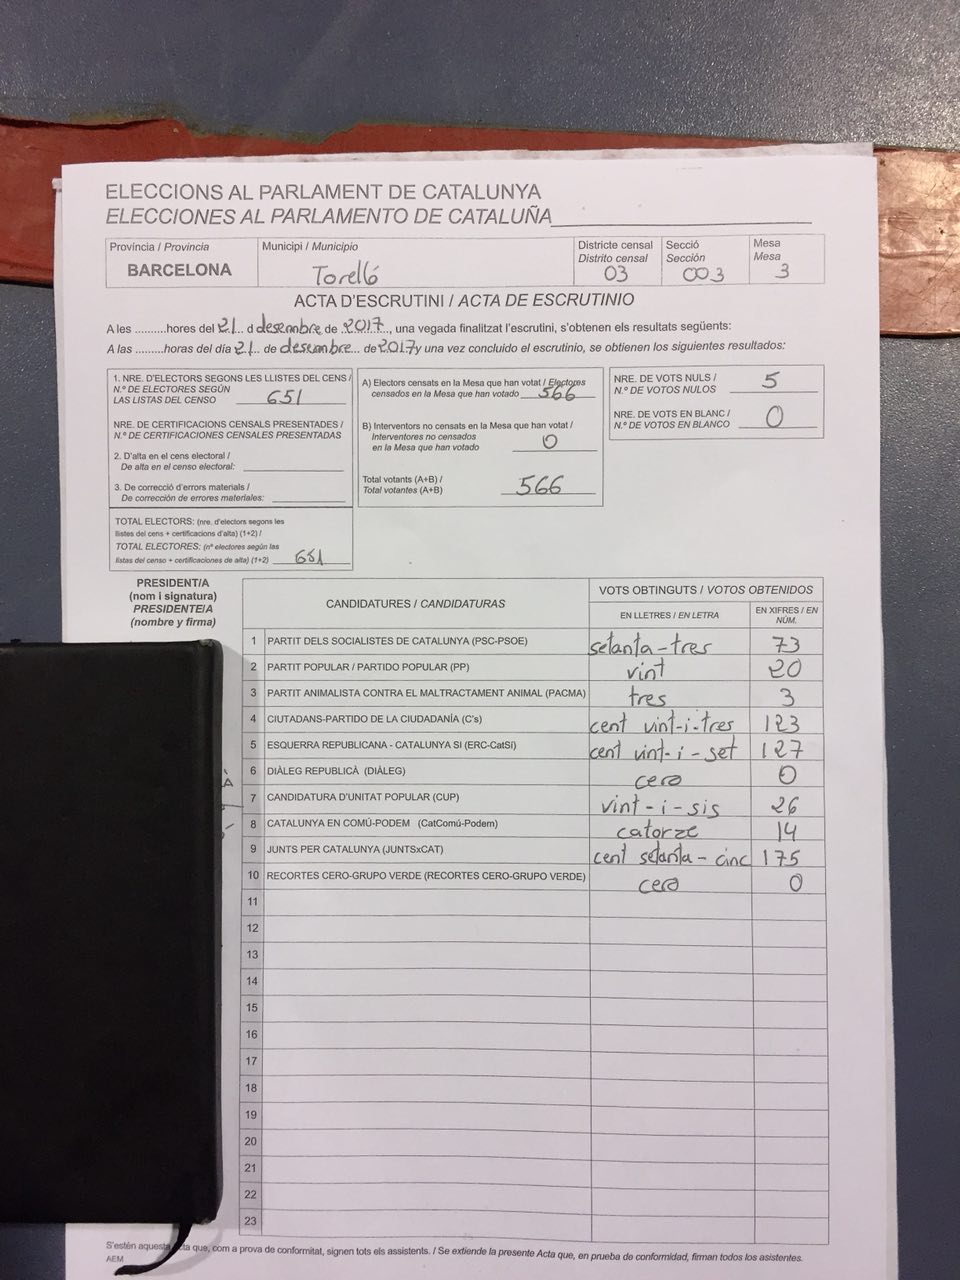 ELECCIONS AL PARLAMENT DE CATALUNYA
ELECCIONES AL PARLAMENTO DE CATALUÑA
Província / Provincia
BARCELONA
Municipi / Municipio
Torelló
Districte censal
Distrito censal
03
Secció
Sección
003
Mesa
Mesa
3
ACTA D'ESCRUTINI / ACTA DE ESCRUTINIO
A les ..........hores del 21 d desembre de 2017, una vegada finalitzat l'escrutini, s'obtenen els resultats següents:
A las .........horas del día 21 de desembre de 2017 y una vez concluido el escrutinio, se obtienen los siguientes resultados:
1. NRE. D'ELECTORS SEGONS LES LLISTES DEL CENS /
N.º DE ELECTORES SEGÚN
LAS LISTAS DEL CENSO 651
NRE. DE CERTIFICACIONS CENSALS PRESENTADES /
N.º DE CERTIFICACIONES CENSALES PRESENTADAS
2. D'alta en el cens electoral /
De alta en el censo electoral:
3. De correcció d'errors materials /
De corrección de errores materiales:
TOTAL ELECTORS: (nre. d'electors segons les
llistes del cens + certificacions d'alta) (1+2) /
TOTAL ELECTORES: (nº electores según las
listas del censo + certificaciones de alta) (1+2) 651
A) Electors censats en la Mesa que han votat / Electores
censados en la Mesa que han votado 566
B) Interventors no censats en la Mesa que han votat /
Interventores no censados
en la Mesa que han votado 0
Total votants (A+B) /
Total votantes (A+B) 566
NRE. DE VOTS NULS /
N.º DE VOTOS NULOS 5
NRE. DE VOTS EN BLANC /
N.º DE VOTOS EN BLANCO 0
PRESIDENT/A
(nom i signatura)
PRESIDENTE/A
(nombre y firma)
CANDIDATURES / CANDIDATURAS
VOTS OBTINGUTS / VOTOS OBTENIDOS
EN LLETRES / EN LETRA
EN XIFRES / EN NÚM.
1 PARTIT DELS SOCIALISTES DE CATALUNYA (PSC-PSOE) setanta-tres 73
2 PARTIT POPULAR / PARTIDO POPULAR (PP) vint 20
3 PARTIT ANIMALISTA CONTRA EL MALTRACTAMENT ANIMAL (PACMA) tres 3
4 CIUTADANS-PARTIDO DE LA CIUDADANÍA (C's) cent vint-i-tres 123
5 ESQUERRA REPUBLICANA - CATALUNYA SÍ (ERC-CatSí) cent vint-i-set 127
6 DIÀLEG REPUBLICÀ (DIÀLEG) cero 0
7 CANDIDATURA D'UNITAT POPULAR (CUP) vint-i-sis 26
8 CATALUNYA EN COMÚ-PODEM (CatComú-Podem) catorze 14
9 JUNTS PER CATALUNYA (JUNTSxCAT) cent setanta-cinc 175
10 RECORTES CERO-GRUPO VERDE (RECORTES CERO-GRUPO VERDE) cero 0
11
12
13
14
15
16
17
18
19
20
21
22
23
S'estén aquesta Acta que, com a prova de conformitat, signen tots els assistents. / Se extiende la presente Acta que, en prueba de conformidad, firman todos los asistentes.
AEM